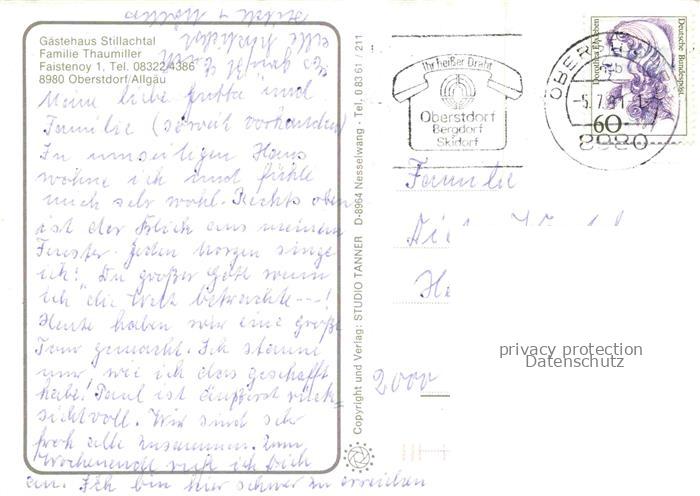 Gästehaus Stillachtal
Familie Thaumiller
Faistenoy 1, Tel. 08322/4386
8980 Oberstdorf/Allgäu
Meine liebe Jutta und
Familie (soweit vorhanden)
In umseitigen Haus
wohne ich und fühle
mich sehr wohl. Rechts oben
ist der Blick aus meinem
Fenster. Jeden Morgen singe
ich: "Du großer Gott wenn
ich die Welt betrachte---!
Heute haben wir eine große
Tour gemacht. Ich staune
nur, wie ich das geschafft
habe. Paul ist äußerst rück=
sichtvoll. Wir sind sehr
froh alle zusammen. Zum
Wochenende rufe ich Dich
an. Ich bin hier schwer zu erreichen
Es grüßt Euch
alle herzlich
Copyright und Verlag: STUDIO TANNER D-8964 Nesselwang - Tel. 08361/211
Ihr heißer Draht
Oberstdorf
Bergdorf
Skidorf
OBERSTDORF
-5.7.91
8980
Deutsche Bundespost
60
Familie
2000
privacy protection
Datenschutz